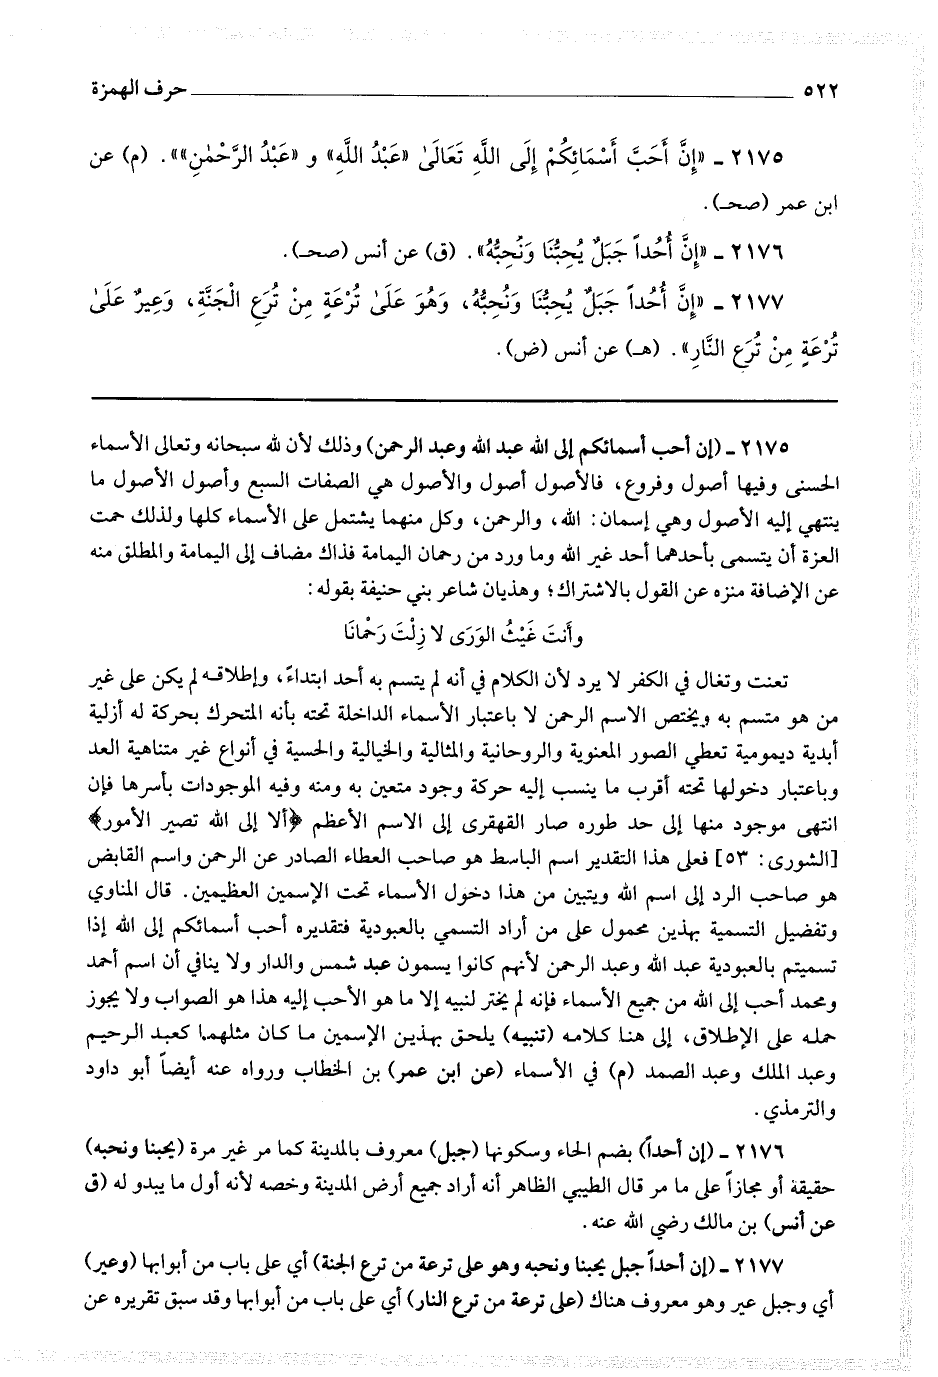 ٥٢٢ حرف الهمزة
٢١٧٥ ـ «إِنَّ أَحَبَّ أَسْمَائِكُمْ إِلَى اللَّهِ تَعَالَىٰ «عَبْدُ اللَّهِ» و «عَبْدُ الرَّحْمٰنِ»». (م) عن
ابن عمر (صحـ).
٢١٧٦ ـ «إِنَّ أُحُداً جَبَلٌ يُحِبُّنَا وَنُحِبُّهُ». (ق) عن أنس (صحـ).
٢١٧٧ ـ «إِنَّ أُحُداً جَبَلٌ يُحِبُّنَا وَنُحِبُّهُ، وَهُوَ عَلَىٰ تُرْعَةٍ مِنْ تُرَعِ الْجَنَّةِ، وَعِيرٌ عَلَىٰ
تُرْعَةٍ مِنْ تُرَعِ النَّارِ». (هـ) عن أنس (ض).
٢١٧٥ ـ (إن أحب أسمائكم إلى الله عبد الله وعبد الرحمن) وذلك لأن لله سبحانه وتعالى الأسماء
الحسنى وفيها أصول وفروع، فالأصول أصول والأصول هي الصفات السبع وأصول الأصول ما
ينتهي إليه الأصول وهي إسمان: الله، والرحمن، وكل منهما يشتمل على الأسماء كلها ولذلك حمت
العزة أن يتسمى بأحدهما أحد غير الله وما ورد من رحمان اليمامة فذاك مضاف إلى اليمامة والمطلق منه
عن الإضافة منزه عن القول بالاشتراك؛ وهذيان شاعر بني حنيفة بقوله:
وأَنتَ غَيْثُ الوَرَى لا زِلْتَ رَحْمَانَا
تعنت وتغال في الكفر لا يرد لأن الكلام في أنه لم يتسم به أحد ابتداءً، وإطلاقه لم يكن على غير
من هو متسم به ويختص الاسم الرحمن لا باعتبار الأسماء الداخلة تحته بأنه المتحرك بحركة له أزلية
أبدية ديمومية تعطي الصور المعنوية والروحانية والمثالية والخيالية والحسية في أنواع غير متناهية العد
وباعتبار دخولها تحته أقرب ما ينسب إليه حركة وجود متعين به ومنه وفيه الموجودات بأسرها فإن
انتهى موجود منها إلى حد طوره صار القهقرى إلى الاسم الأعظم ﴿ألا إلى الله تصير الأمور﴾
[الشورى: ٥٣] فعلى هذا التقدير اسم الباسط هو صاحب العطاء الصادر عن الرحمن واسم القابض
هو صاحب الرد إلى اسم الله ويتبين من هذا دخول الأسماء تحت الإسمين العظيمين. قال المناوي
وتفضيل التسمية بهذين محمول على من أراد التسمي بالعبودية فتقديره أحب أسمائكم إلى الله إذا
تسميتم بالعبودية عبد الله وعبد الرحمن لأنهم كانوا يسمون عبد شمس والدار ولا ينافي أن اسم أحمد
ومحمد أحب إلى الله من جميع الأسماء فإنه لم يختر لنبيه إلا ما هو الأحب إليه هذا هو الصواب ولا يجوز
حمله على الإطلاق، إلى هنا كلامه (تنبيه) يلحق بهذين الإسمين ما كان مثلهما كعبد الرحيم
وعبد الملك وعبد الصمد (م) في الأسماء (عن ابن عمر) بن الخطاب ورواه عنه أيضاً أبو داود
والترمذي.
٢١٧٦ ـ (إن أحداً) بضم الحاء وسكونها (جبل) معروف بالمدينة كما مر غير مرة (يحبنا ونحبه)
حقيقة أو مجازاً على ما مر قال الطيبي الظاهر أنه أراد جميع أرض المدينة وخصه لأنه أول ما يبدو له (ق
عن أنس) بن مالك رضي الله عنه.
٢١٧٧ ـ (إن أحداً جبل يحبنا ونحبه وهو على ترعة من ترع الجنة) أي على باب من أبوابها (وعير)
أي وجبل عير وهو معروف هناك (على ترعة من ترع النار) أي على باب من أبوابها وقد سبق تقريره عن